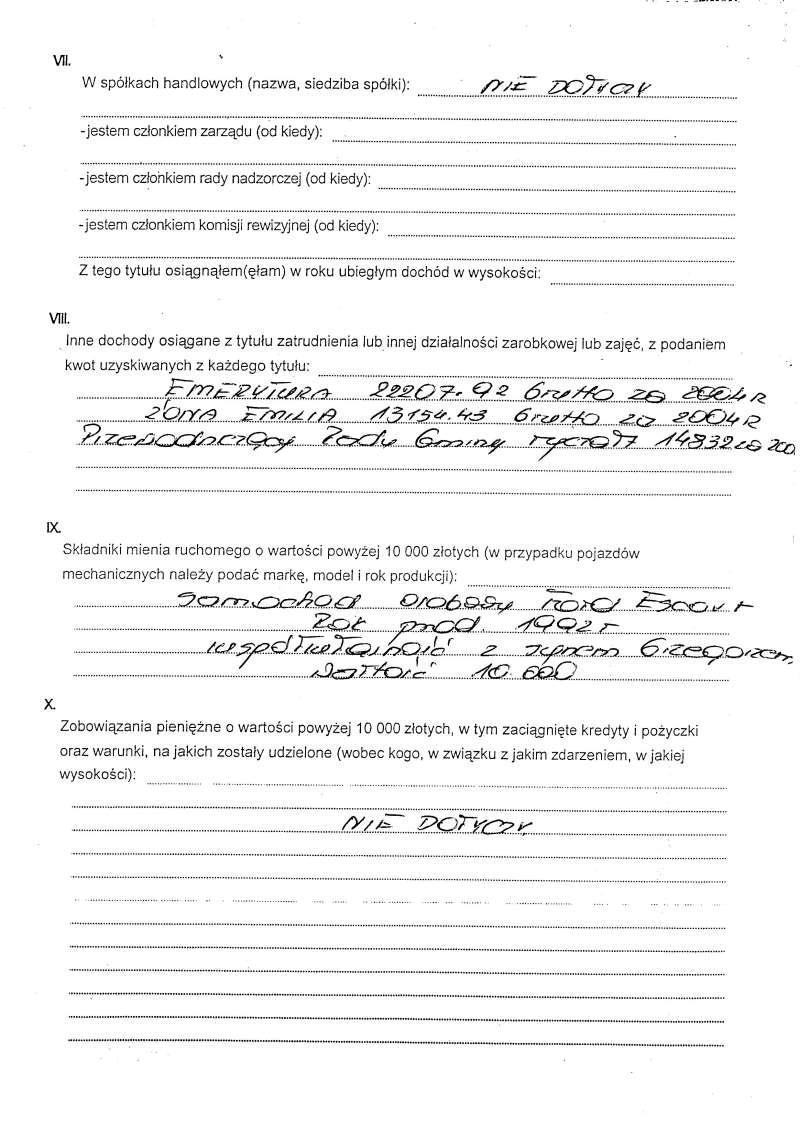 VII.
W spółkach handlowych (nazwa, siedziba spółki): NIE DOTYCZY
-jestem członkiem zarządu (od kiedy):
-jestem członkiem rady nadzorczej (od kiedy):
-jestem członkiem komisji rewizyjnej (od kiedy):
Z tego tytułu osiągnąłem(ęłam) w roku ubiegłym dochód w wysokości:
VIII.
Inne dochody osiągane z tytułu zatrudnienia lub innej działalności zarobkowej lub zajęć, z podaniem
kwot uzyskiwanych z każdego tytułu:
EMERYTURA 22207.92 Brutto za 2004 R
ŻONA EMILIA 13154.43 Brutto za 2004 R
Przewodniczący Rady Gminy ryczałt 14832 za 200
IX.
Składniki mienia ruchomego o wartości powyżej 10 000 złotych (w przypadku pojazdów
mechanicznych należy podać markę, model i rok produkcji):
Samochód osobowy Ford Escort
Rok prod. 1992 r
współwłasność z synem Grzegorzem
Wartość 10.000
X.
Zobowiązania pieniężne o wartości powyżej 10 000 złotych, w tym zaciągnięte kredyty i pożyczki
oraz warunki, na jakich zostały udzielone (wobec kogo, w związku z jakim zdarzeniem, w jakiej
wysokości):
NIE DOTYCZY